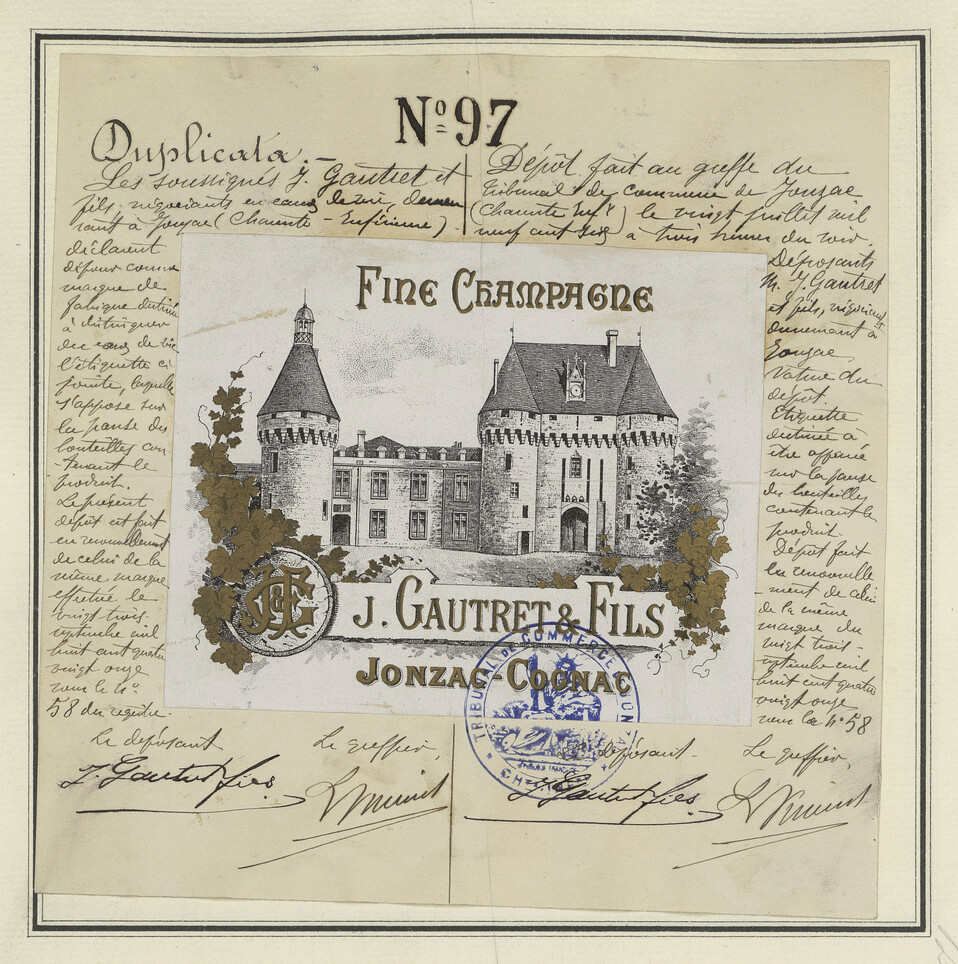 Nº 97
Duplicata.-
Les soussignés J. Gautret et
fils, négociants en eaux de vie, demeu
rant à Jonzac (Charente-Inférieure)
déclarent
déposer comme
marque de
fabrique destinée
à distinguer
des eaux de vie
l'étiquette ci
jointe, laquelle
s'appose sur
la panse des
bouteilles con-
tenant le
produit.
Le présent
dépôt est fait
en renouvellement
de celui de la
même marque
effectué le
vingt trois
septembre mil
huit cent quatre
vingt onze
sous le nº
58 du registre.
Le déposant
Le greffier,
J. Gautret & fils
Dépôt fait au greffe du
tribunal de commerce de Jonzac
(Charente Infre) le vingt juillet mil
neuf cent six à trois heures du soir.
Déposants
M. J. Gautret
et fils, négociants
demeurant à
Jonzac
Nature du
dépôt
Etiquette
destinée à
être apposée
sur la panse
des bouteilles
contenant le
produit.
Dépôt fait
en renouvelle
-ment de celui
de la même
marque du
vingt trois
septembre mil
huit cent quatre
vingt onze
sous le nº 58
déposant
Le greffier,
J. Gautret & fils
FINE CHAMPAGNE
J&E
J. GAUTRET & FILS
JONZAC-COGNAC
TRIBUNAL DE COMMERCE